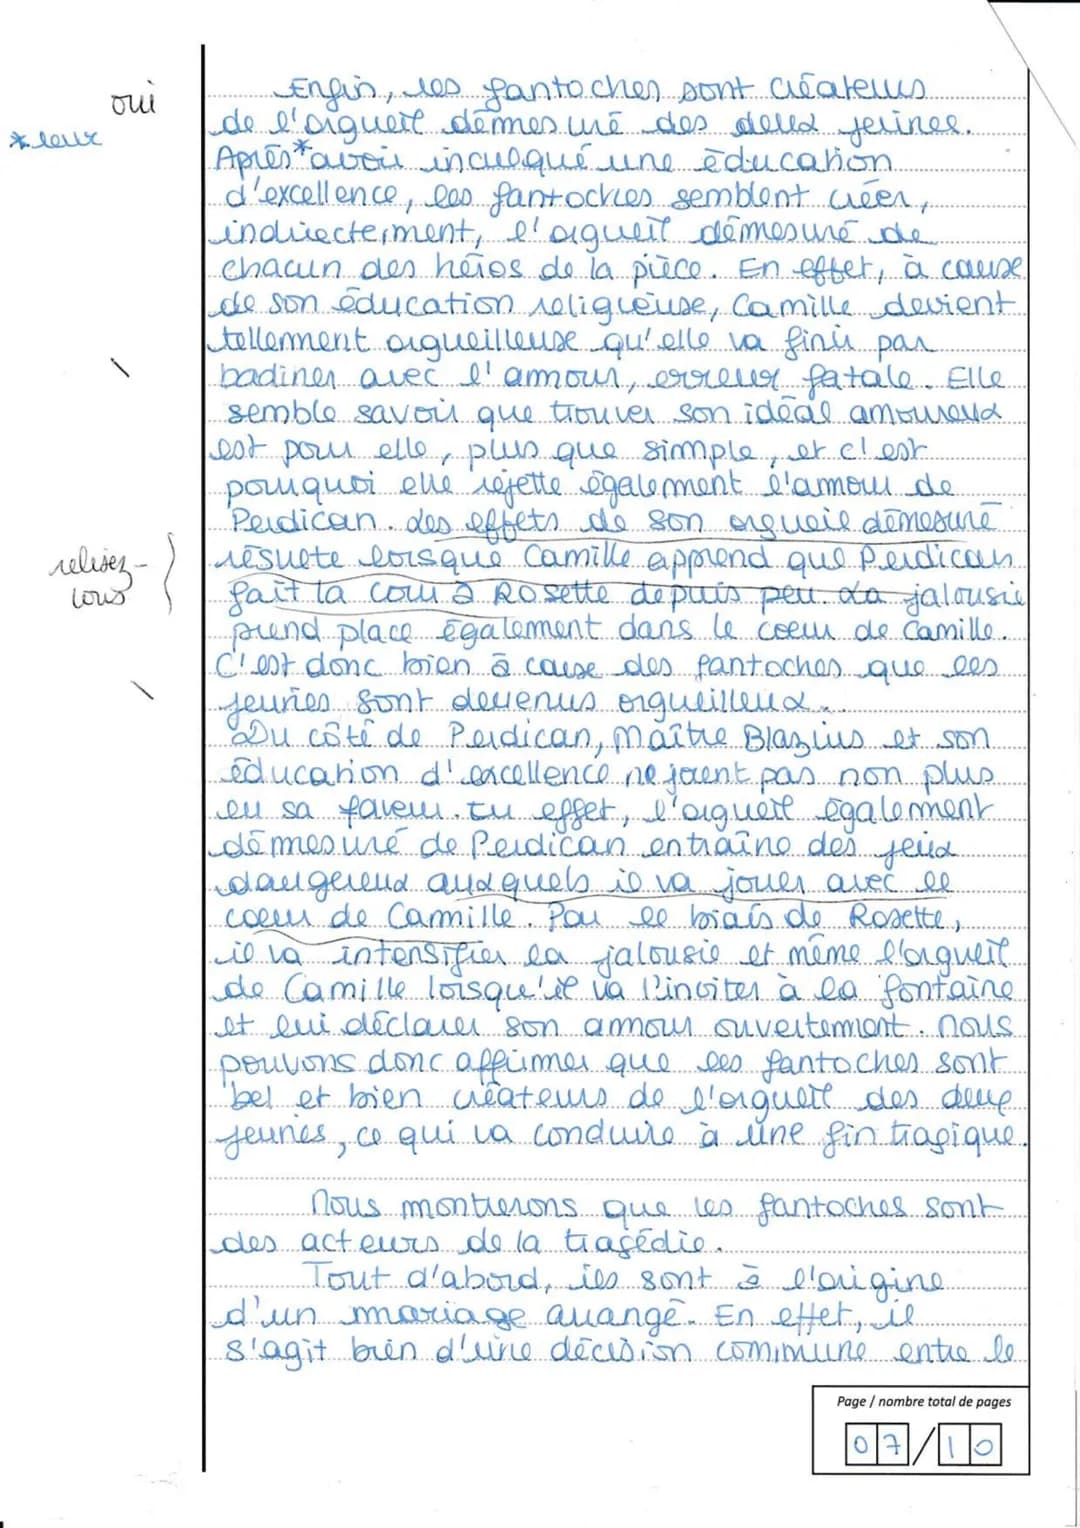 oui
* leur
Enfin, les fantoches sont créateurs
de l'orgueil démesuré des deux jeunes.
Après * avoir inculqué une éducation
d'excellence, les fantoches semblent créer,
indirectement, l'orgueil démesuré de
chacun des héros de la pièce. En effet, à cause
de son éducation religieuse, Camille devient
tellement orgueilleuse qu'elle va finir par
badiner avec l'amour, erreur fatale. Elle
semble savoir que trouver son idéal amoureux
est pour elle, plus que simple, et c'est
pourquoi elle rejette également l'amour de
Perdican. Les effets de son orgueil démesuré
relisez-
vous
résulte lorsque Camille apprend que Perdican
fait la cour à Rosette depuis peu. La jalousie
prend place également dans le coeur de Camille.
C'est donc bien à cause des fantoches que les
jeunes sont devenus orgueilleux.
Du côté de Perdican, Maître Blazius et son
éducation d'excellence ne jouent pas non plus
en sa faveur. En effet, l'orgueil également
démesuré de Perdican entraîne des jeux
dangereux auxquels il va jouer avec le
coeur de Camille. Par le biais de Rosette,
il va intensifier la jalousie et même l'orgueil
de Camille lorsqu'il va l'inviter à la fontaine
et lui déclarer son amour ouvertement. Nous
pouvons donc affirmer que les fantoches sont
bel et bien créateurs de l'orgueil des deux
jeunes, ce qui va conduire à une fin tragique.
Nous montrerons que les fantoches sont
des acteurs de la tragédie.
Tout d'abord, ils sont à l'origine
d'un mariage arrangé. En effet, il
s'agit bien d'une décision commune entre le
Page / nombre total de pages
07/10